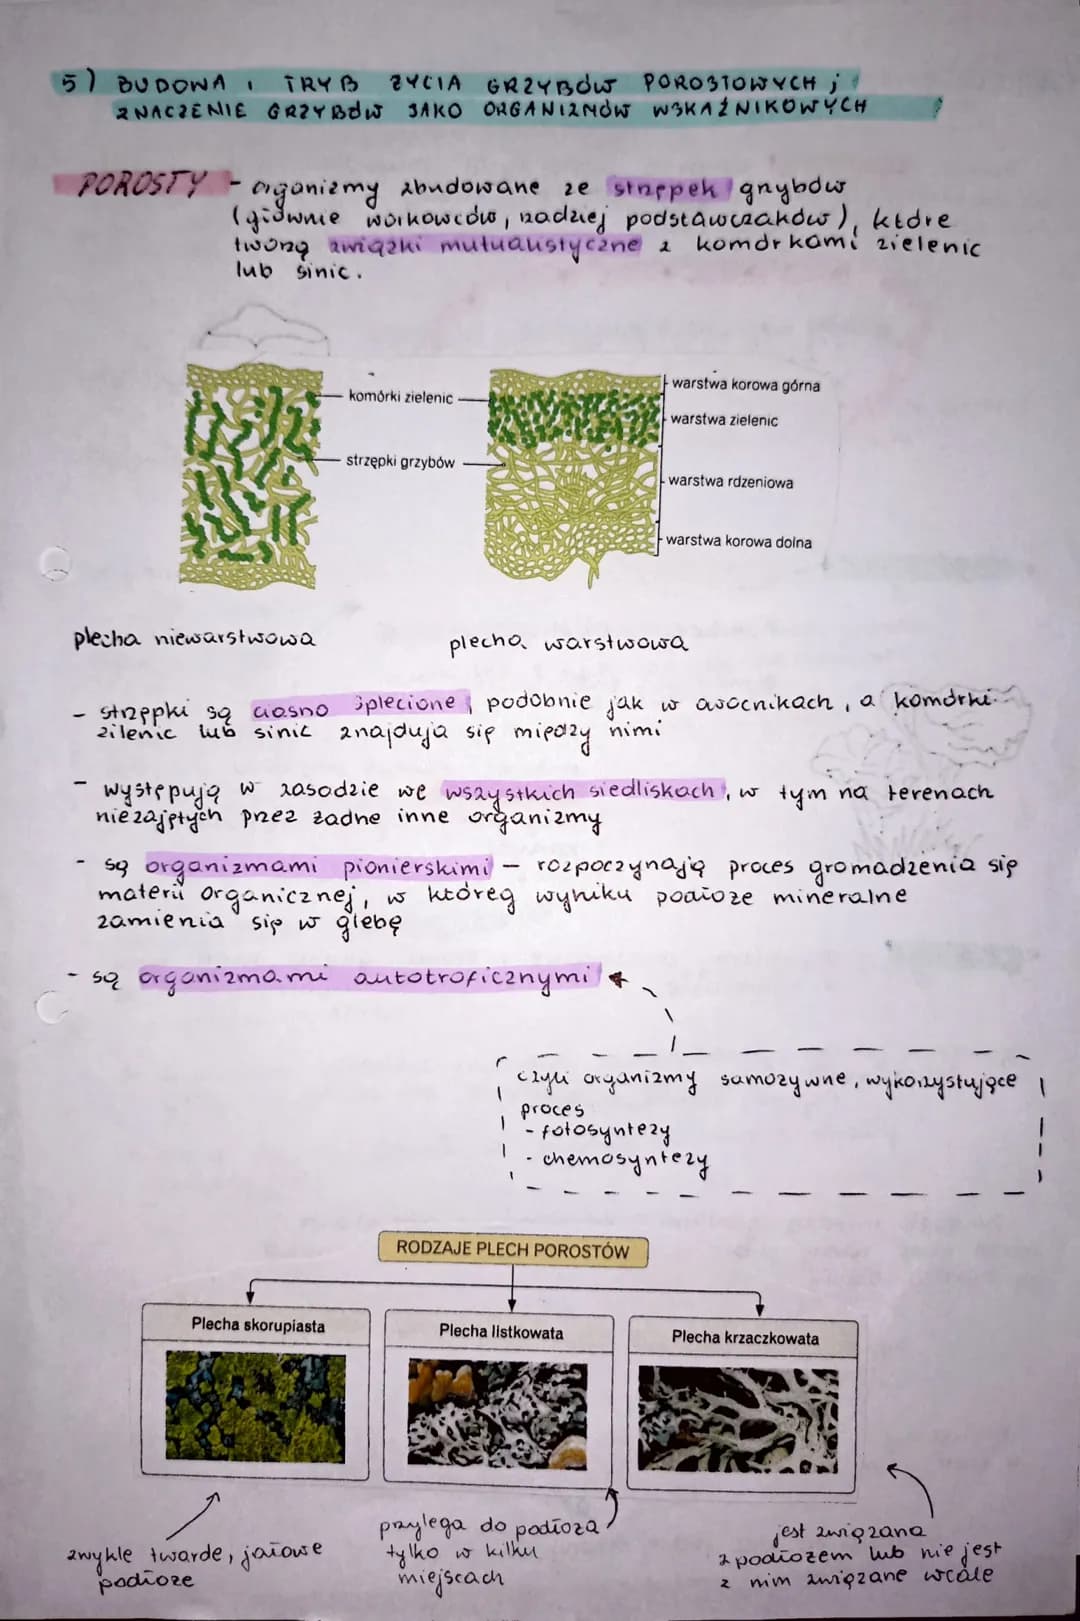 5) BUDOWA I TRYB ŻYCIA GRZYBÓW POROSTOWYCH ;
ZNACZENIE GRZYBÓW JAKO ORGANIZMÓW WSKAŹNIKOWYCH
POROSTY - organizmy zbudowane ze strzępek grzybów
(głównie workowców, rzadziej podstawczaków), które
tworzą związki mutualistyczne z komórkami zielenic
lub sinic.
komórki zielenic
strzępki grzybów
warstwa korowa górna
warstwa zielenic
warstwa rdzeniowa
warstwa korowa dolna
plecha niewarstwowa
plecha warstwowa
- strzępki są ciasno splecione, podobnie jak w owocnikach, a komórki
zilenic lub sinic znajdują się między nimi
- występują w zasodzie we wszystkich siedliskach, w tym na terenach
niezajętych przez żadne inne organizmy
- są organizmami pionierskimi - rozpoczynają proces gromadzenia się
materii organicznej, w któreg wyniku podłoże mineralne
zamienia się w glebę
- są organizmami autotroficznymi
czyli organizmy samożywne, wykorzystujące
proces
- fotosyntezy
- chemosyntezy
RODZAJE PLECH POROSTÓW
Plecha skorupiasta
Plecha listkowata
Plecha krzaczkowata
zwykle twarde, jałowe
podłoże
przylega do podłoża
tylko w kilku
miejscach
jest związana
z podłożem lub nie jest
z nim związane wcale